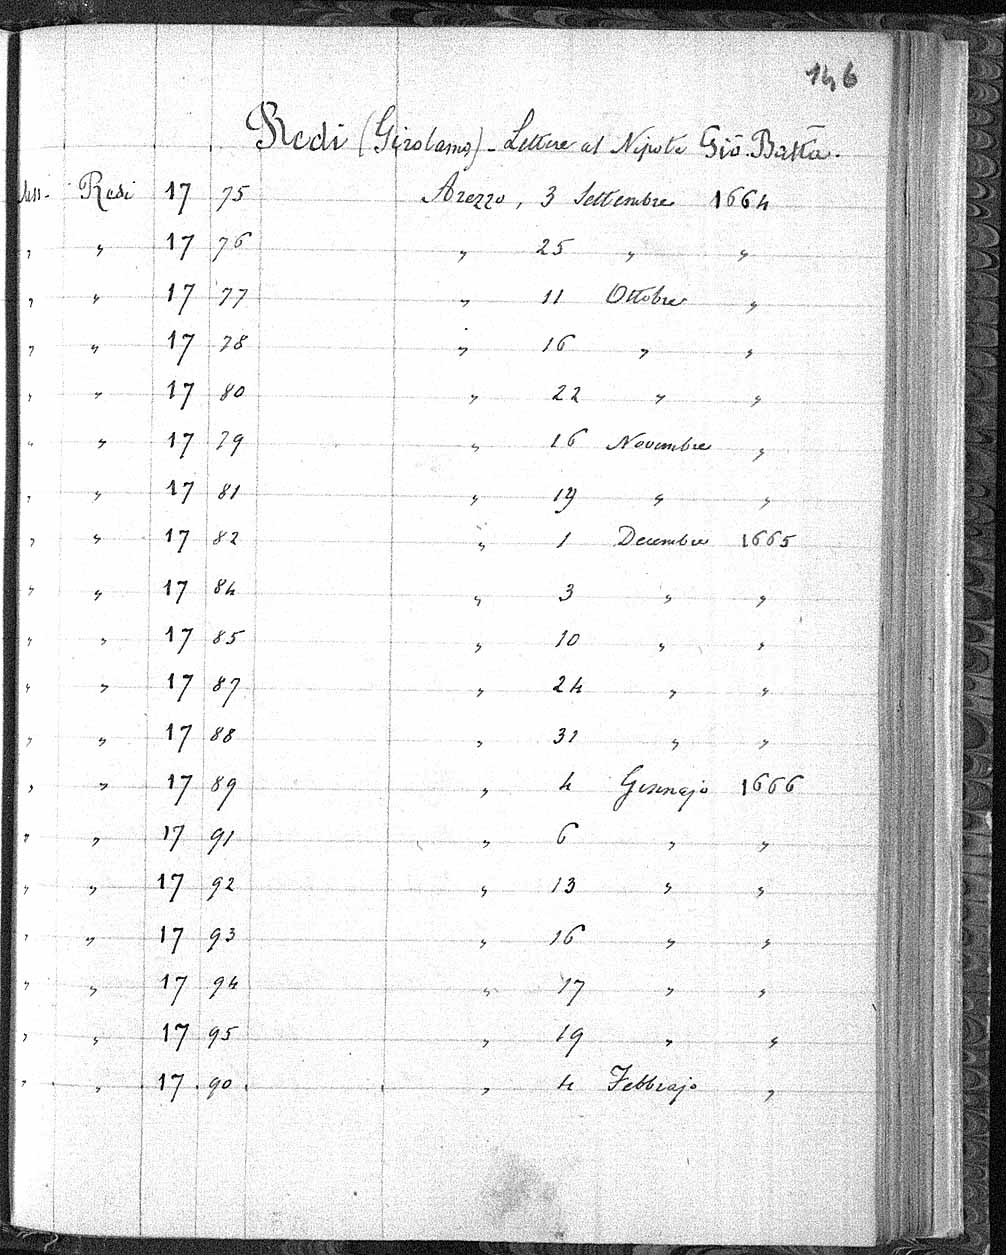 146
Redi (Girolamo) - Lettere al Nipote Gio. Batta.
Redi 17 75 Arezzo, 3 Settembre 1664
" " 17 76 " 25 " "
" " 17 77 " 11 Ottobre "
" " 17 78 " 16 " "
" " 17 80 " 22 " "
" " 17 79 " 16 Novembre "
" " 17 81 " 19 " "
" " 17 82 " 1 Decembre 1665
" " 17 84 " 3 " "
" " 17 85 " 10 " "
" " 17 87 " 24 " "
" " 17 88 " 31 " "
" " 17 89 " 4 Gennajo 1666
" " 17 91 " 6 " "
" " 17 92 " 13 " "
" " 17 93 " 16 " "
" " 17 94 " 17 " "
" " 17 95 " 19 " "
" " 17 90 " 4 Febbrajo "